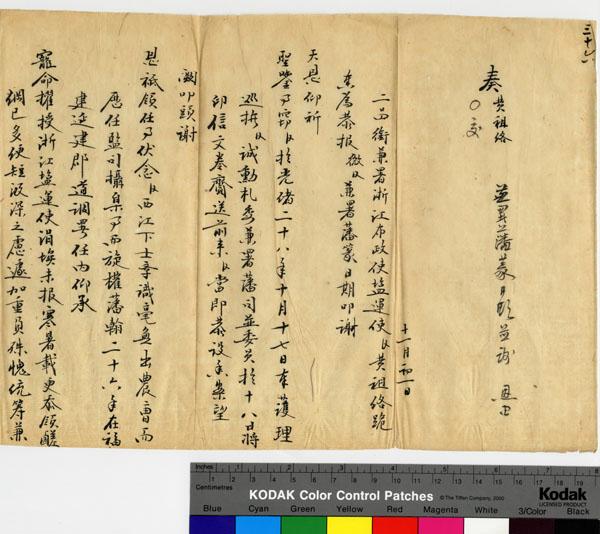 三十六
奏 黃祖絡
○ 交
並署藩篆日期並謝 恩由
十一月初一日
二品銜兼署浙江布政使塩運使臣黃祖絡跪
奏為恭报微臣兼署藩篆日期叩謝
天恩仰祈
聖鑒事竊臣於光緒二十八年十月十七日奉護理
巡撫臣誠勳札委兼署藩司並委員於十八日將
印信文卷齎送前来臣當即恭設香案望
闕叩頭謝
恩祗領任事伏念臣西江下士辛識毫無出農曹而
歷任監司攝臬事而旋權藩翰二十六年在福
建延建郡道調署任內仰承
寵命擢授浙江塩運使涓埃未报寒暑載更忝領鹺
綱已多綆短汲深之慮遽加重負殊愧統籌兼
Inches 1 2 3 4 5 6 7 8
Centimetres 1 2 3 4 5 6 7 8 9 10 11 12 13 14 15 16 17 18 19
KODAK Color Control Patches © The Tiffen Company, 2000
Kodak
LICENSED PRODUCT
Blue Cyan Green Yellow Red Magenta White 3/Color Black